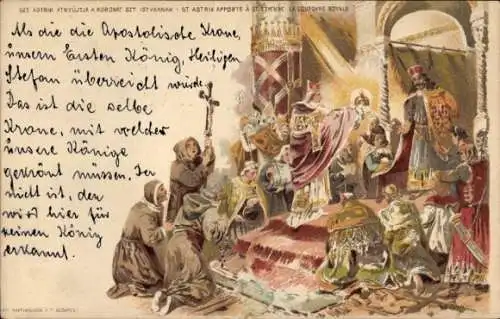 SZT. ASTRIK ÁTNYÚJTJA A KORONÁT SZT. ISTVÁNNAK · ST ASTRIX APPORTE À ST ETIENNE LA COURONNE ROYALE
Als die die Apostolische Krone,
unsern Ersten König, Heiligen
Stefan überreicht wurde.
Das ist die selbe
Krone, mit welcher
unsere Könige
gekrönt müssen. Der
nicht ist, der
wird hier für
keinen König
erkannt.